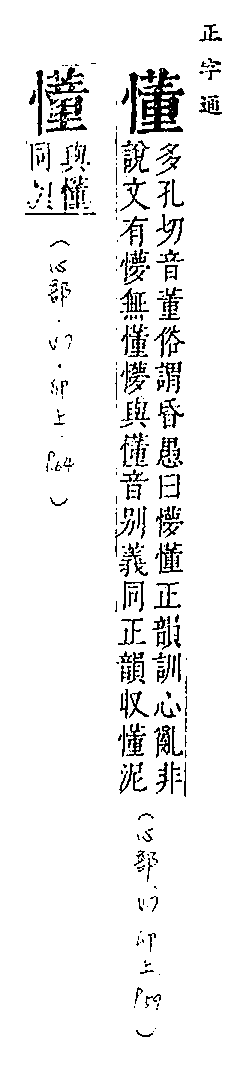 正字通
懂
多孔切音董俗謂昏愚曰懞懂正韻訓心亂非
說文有懞無懂懞與懂音別義同正韻収懂泥
(心部.卯上 P.59)
與懂
同
(心部.卯上 P.64)